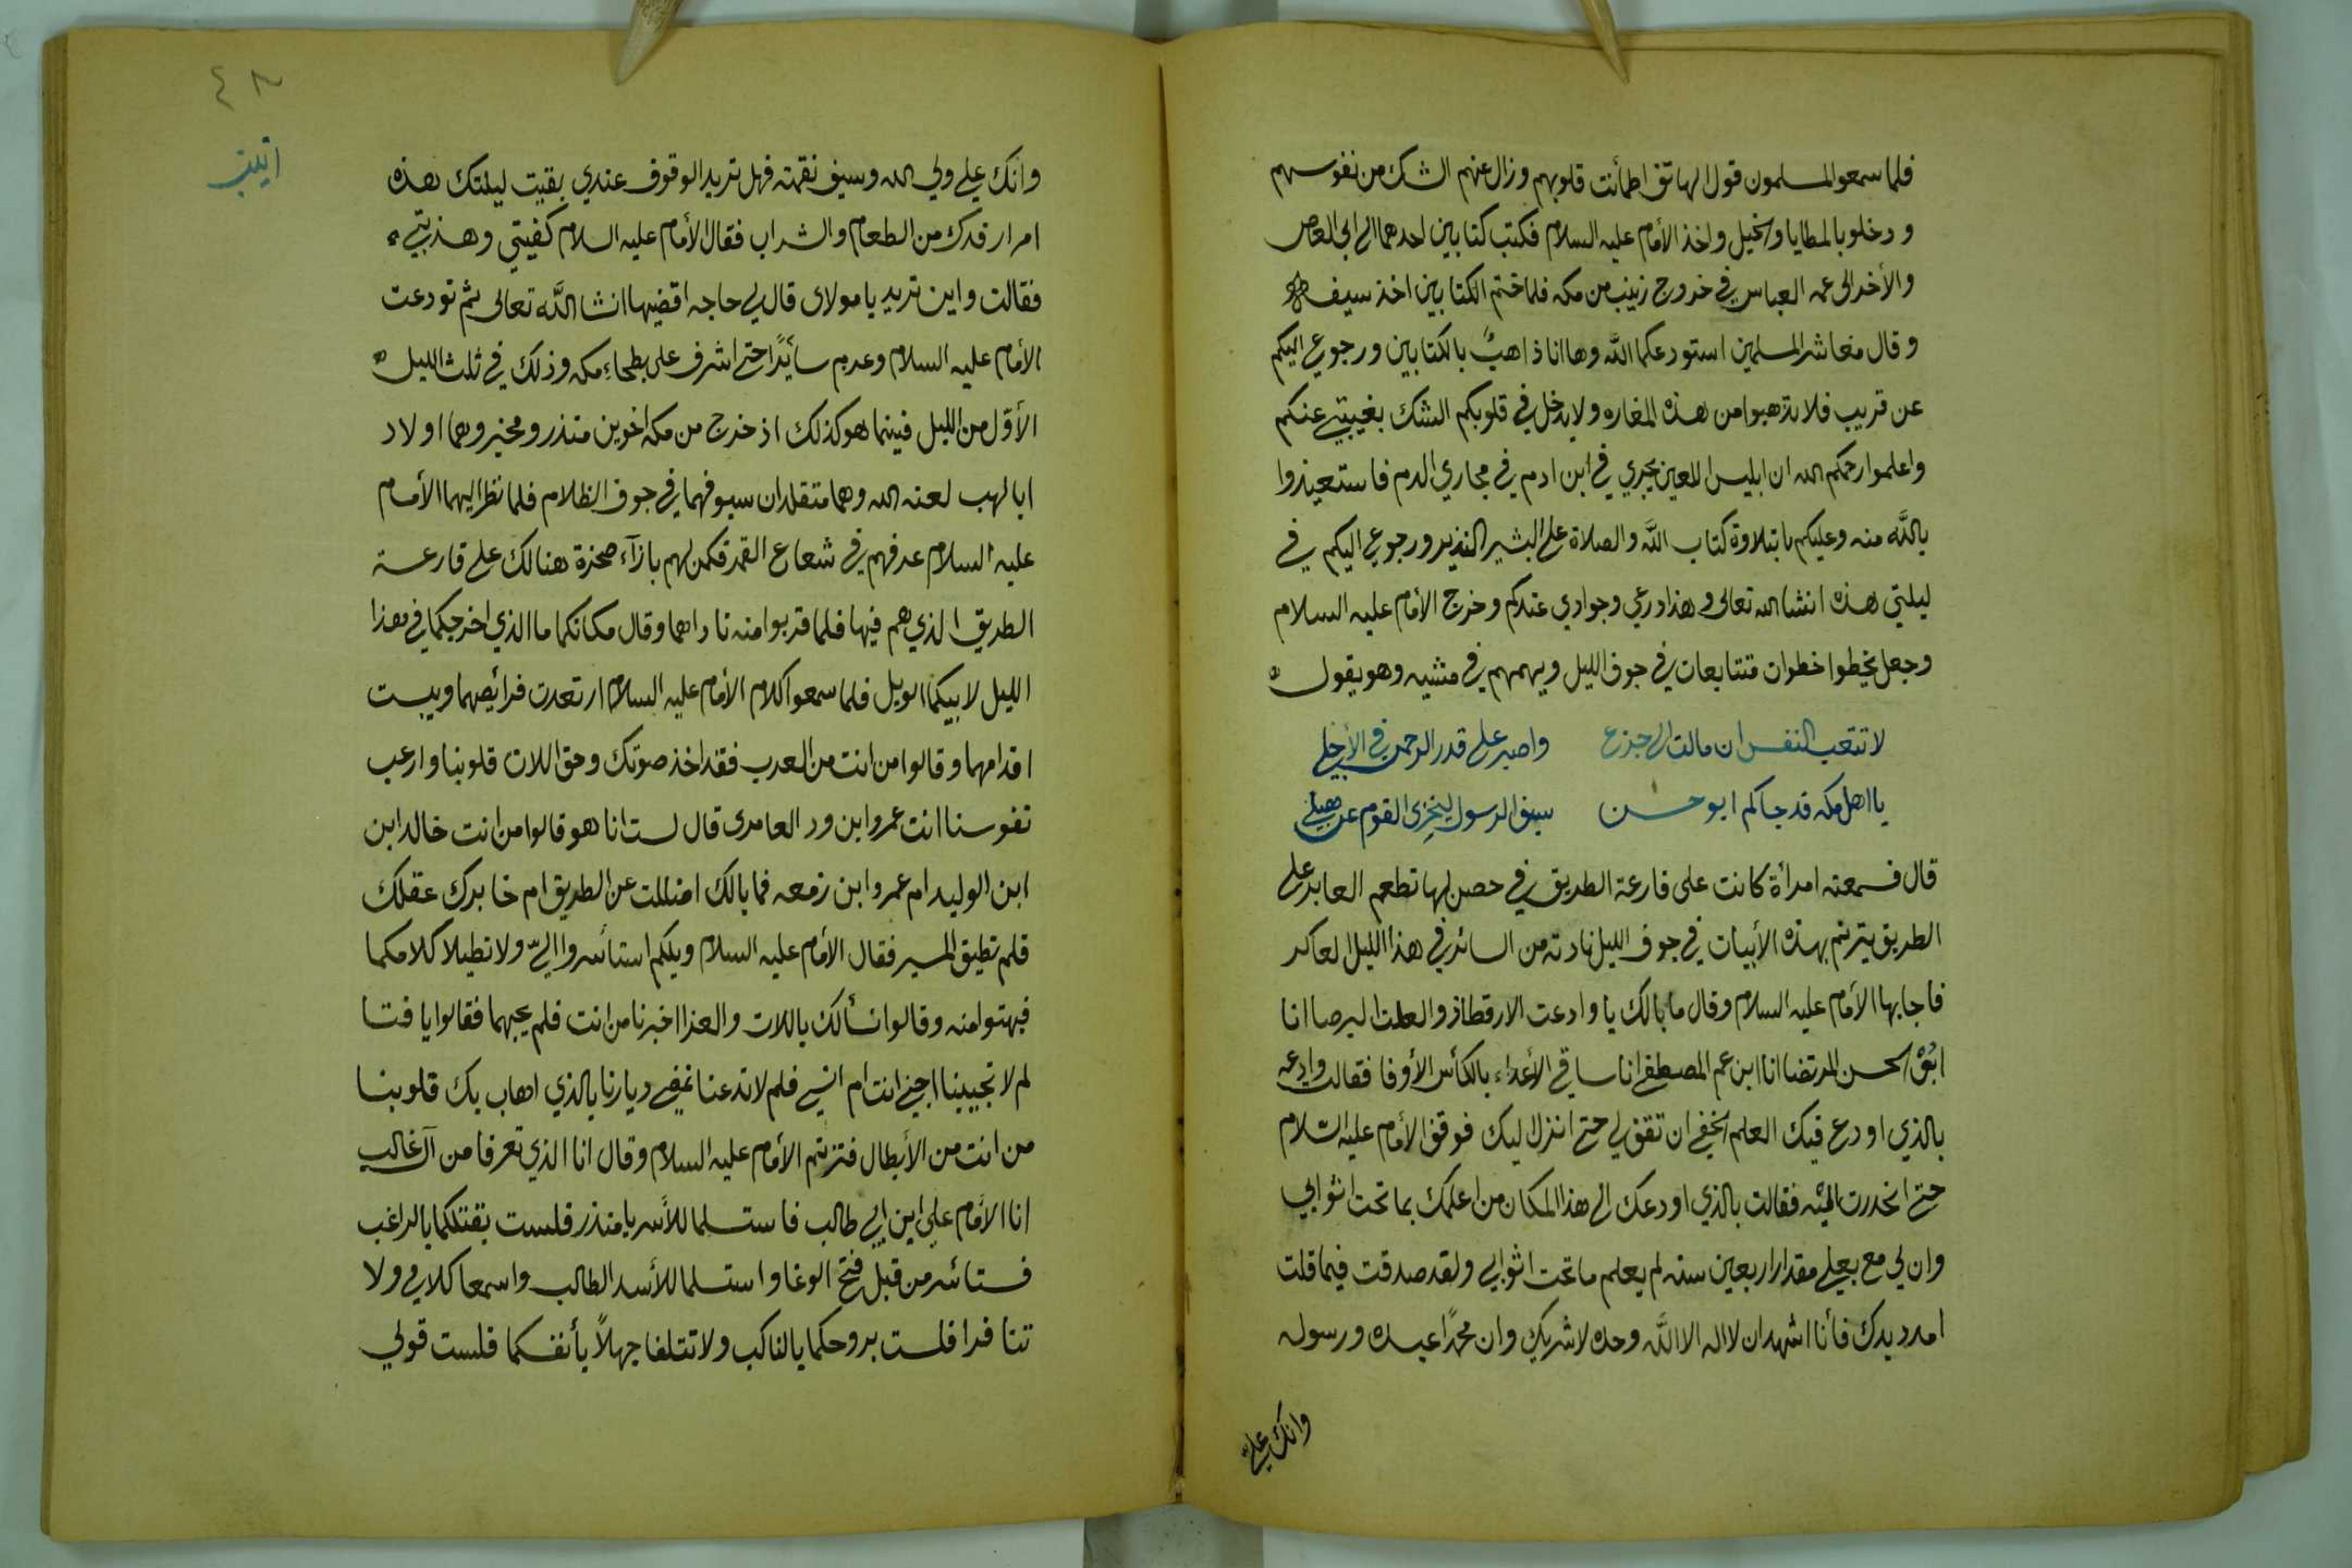 فلما سمعوا المسلمون قول الهاتف اطمأنت قلوبهم وزال عنهم الشك من نفوسهم
ودخلو بالمطايا والخيل واخذ الأمام عليه السلام فكتب كتابين احدهما الى ابي العاص
والأخر الى عمه العباس في خروج زينب من مكه فلما ختم الكتابين اخذ سيفه
وقال معاشر المسلمين استودعكما الله وها انا ذاهبٌ بالكتابين ورجوعي اليكم
عن قريب فلا تذهبوا من هذه المغاره ولا يدخل في قلوبكم الشك بغيبتي عنكم
واعلموا رحمكم الله ان ابليس اللعين يجري في ابن ادم في مجاري الدم فاستعيذوا
بالله منه وعليكم بتلاوة كتاب الله والصلاة على البشير النذير ورجوعي اليكم في
ليلتي هذه انشا الله تعالى وهذا درعي وجوادي عندكم وخرج الأمام عليه السلام
وجعل يخطوا خطوات متتابعات في جوف الليل ويهمهم في مشيه وهو يقول
لا تتعب النفس ان مالت الى جزع واصبر على قدر الرحمن في الأجلي
يا اهل مكه قد جاكم ابو حسن سيف الرسول ليخزى القوم عن هبلي
قال فسمعته امرأة كانت على قارعة الطريق في حصن لها تطعم العابر على
الطريق يترنم بهذه الأبيات في جوف الليل نادته من السائر في هذا الليل العاكر
فاجابها الأمام عليه السلام وقال ما بالك يا وادعت الارقطا ذو العلت البرصا انا
ابو الحسن المرتضا انا ابن عم المصطفى انا ساقي الأعداء بالكأس الأوفا فقالت وادعه
بالذي اودع فيك العلم الخفي ان تقف لي حتى انزل اليك فوقف الأمام عليه السلام
حتى انحدرت اليه فقالت بالذي اودعك الى هذا المكان من اعلمك بما تحت اثوابي
وان لي مع بعلي مقدار اربعين سنه لم يعلم ما تحت اثوابي ولقد صدقت فيما قلت
امدد يدك فأنا اشهد ان لا اله الا الله وحده لا شريك وان محمدًا عبده ورسوله
وانك علي
٤٨
وانك علي ولي الله وسيف نقمته فهل تريد الوقوف عندي بقيت ليلتك هذه
ام ارفدك من الطعام والشراب فقال الأمام عليه السلام كفيتي وهذبتي
فقالت واين تريد يا مولاى قال لي حاجه اقضيها انشا الله تعالى ثم تودعت
الأمام عليه السلام وعدم سأيرًا حتى اشرف على بطحاء مكه وذلك في ثلث الليل
الأول من الليل فبينما هو كذلك اذ خرج من مكه اخوين منذر ومخير وهما اولاد
ابا لهب لعنه الله وهما متقلدان سيوفهما في جوف الظلام فلما نظر اليهما الأمام
عليه السلام عرفهم في شعاع القمر فكمن لهم بازآء صخرة هنالك على قارعة
الطريق الذي هم فيها فلما قربوا منه ناداهما وقال مكانكما ما الذي اخرجكما في هذا
الليل لابيكما الويل فلما سمعوا كلام الأمام عليه السلام ارتعدت فرائصهما ويبست
اقدامهما وقالوا من انت من العرب فقد اخذ صوتك وحق اللات قلوبنا وارعب
نفوسنا انت عمرو ابن ود العامرى قال لست انا هو قالوا من انت خالد ابن
ابن الوليد ام عمرو ابن زمعه فما بالك اضللت عن الطريق ام خابرك عقلك
فلم تطيق المسير فقال الأمام عليه السلام ويلكم استأسروا اليّ ولا تطيلا كلامكما
فبهتوا منه وقالوا نسألك باللات والعزا اخبرنا من انت فلم يجبهما فقالوا يا فتا
لم لا تجيبنا اجني انت ام انسي فلم لا تدعنا نمضي ديارنا بالذي اهاب بك قلوبنا
من انت من الأبطال فتزنم الأمام عليه السلام وقال انا الذي تعرفا من آل غالب
انا الأمام علي ابن ابي طالب فاستسلما للأسر يا منذر فلست بقتلكما بالراغب
فستائسر من قبل فتح الوغا واستسلما للأسد الطالب واسمعا كلامي ولا
تنافرا فلست بروحكما بالناكب ولا تتلفا جهلاً بأنفسكما فلست قولي